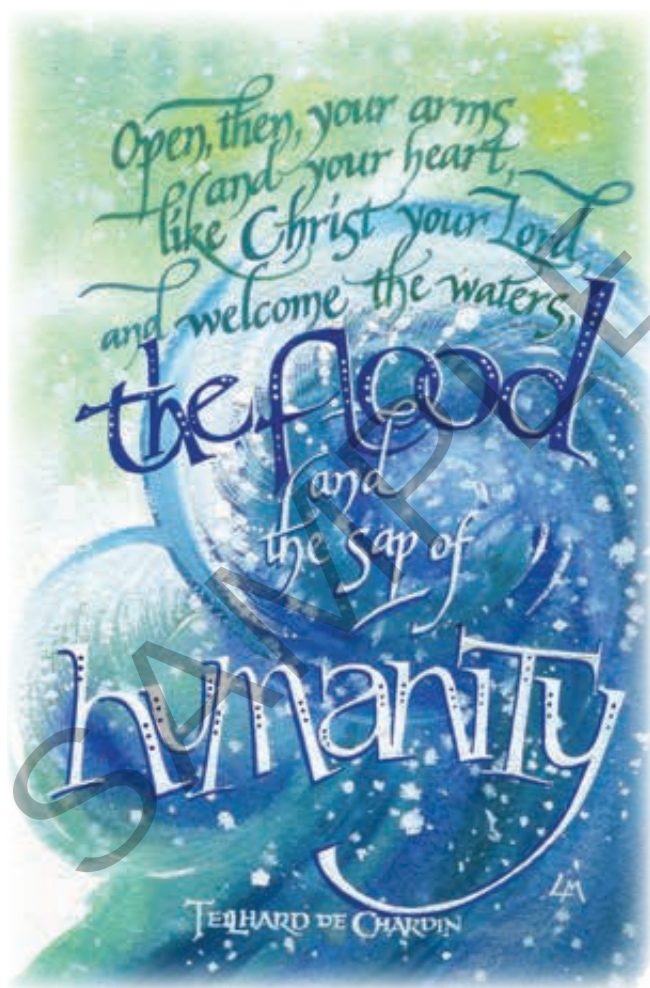 Open, then, your arms
and your heart,
like Christ your Lord,
and welcome the waters,
the flood
and
the sap of
humanity
LM
TEILHARD DE CHARDIN
SAMPLE